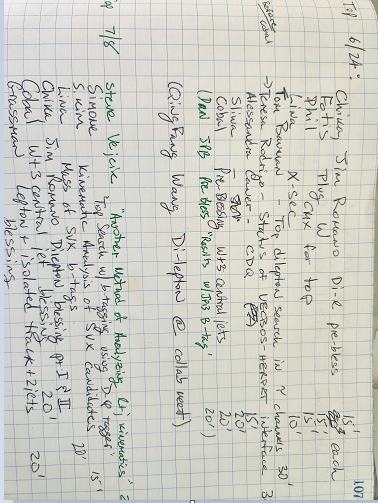 107
Top 6/24:
Chikay Jim Romano Di-l pre-bless 15'
Fotis Plug W 15' each
Phil CMX for top 15'
Ling X-sec 10'
Tom Baumann - Top dilepton search in γ channels 30'
→ Teresa Rodrigo - Status of VECBOS HERPRT interface 3
Alessandra Caner - CDQ 15'
Sliwa -
Cobal Pre-Blessing W+3 central jets 20'
(Dan JPB Pre bless "Results w/JPB B-tag" 20')
(QingFang Wang Di-lepton @ collab meet)
7/8 Steve Vejcik "Another Method of Analyzing l+j kinematics"
Simone "Top Search w/ b-tagging using D tagger" 15'
S. Kim Kinematic Analysis of SVX candidates 20'
Lina Mass of SVX b-tags
Chika Jim Romano Dilepton blessing pt I & II
Cobal W+3 central jet blessing 20'
Grassman Lepton + isolated track + 2 jets 20'
blessing